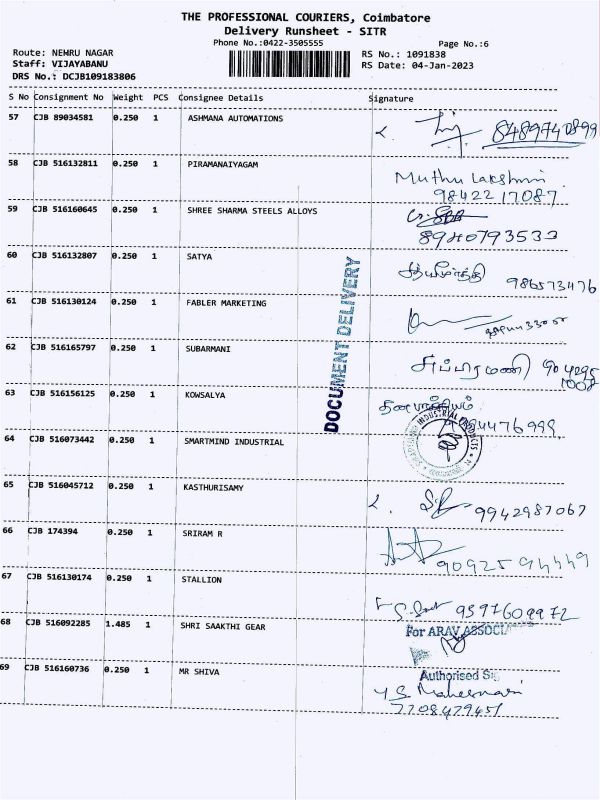 THE PROFESSIONAL COURIERS, Coimbatore
Delivery Runsheet - SITR
Phone No.:0422-3505555 Page No.:6
Route: NEHRU NAGAR RS No.: 1091838
Staff: VIJAYABANU RS Date: 04-Jan-2023
DRS No.: DCJB109183806
S No Consignment No Weight PCS Consignee Details Signature
57 CJB 89034581 0.250 1 ASHMANA AUTOMATIONS 8489740899
58 CJB 516132811 0.250 1 PIRAMANAIYAGAM
Muthu Lakshmi
98422 17087
59 CJB 516160645 0.250 1 SHREE SHARMA STEELS ALLOYS
8940793533
60 CJB 516132807 0.250 1 SATYA
986573476
61 CJB 516130124 0.250 1 FABLER MARKETING
62 CJB 516165797 0.250 1 SUBARMANI
சிப்பிரமணி
63 CJB 516156125 0.250 1 KOWSALYA
64 CJB 516073442 0.250 1 SMARTMIND INDUSTRIAL
INDUSTRIAL PRODUCTS
DOCUMENT DELIVERY
65 CJB 516045712 0.250 1 KASTHURISAMY
9942987067
66 CJB 174394 0.250 1 SRIRAM R
67 CJB 516130174 0.250 1 STALLION
9597609972
68 CJB 516092285 1.485 1 SHRI SAAKTHI GEAR
For ARAV ASSOCI
69 CJB 516160736 0.250 1 MR SHIVA
Authorised Sig
Y S Maheswari
7708479451